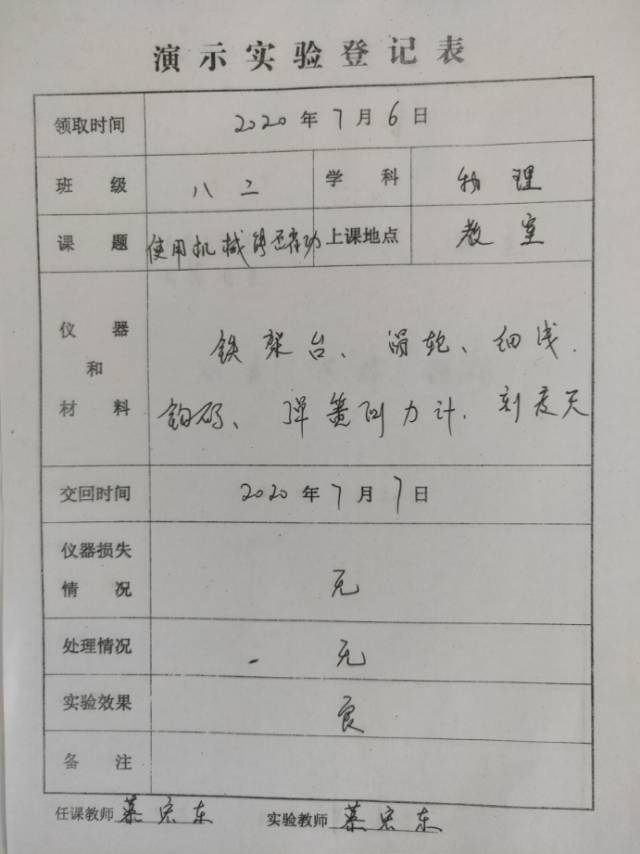 演示实验登记表
领取时间 2020年7月6日
班级 八二 学科 物理
课题 使用机械能否省功 上课地点 教室
仪器和材料 铁架台、滑轮、细线.
钩码、弹簧测力计.刻度尺
交回时间 2020年7月7日
仪器损失情况 无
处理情况 无
实验效果 良
备注
任课教师 宏东 实验教师 宏东